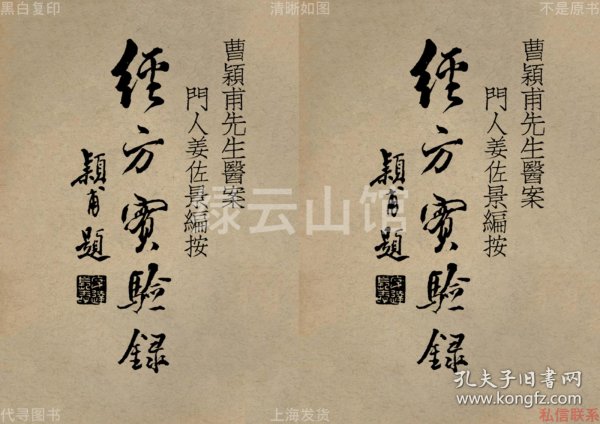 黑白复印
清晰如图
不是原书
曹穎甫先生醫案
門人姜佐景編按
經方實驗録
穎甫題
曹穎甫先生醫案
門人姜佐景編按
經方實驗録
穎甫題
绿云山馆
孔夫子旧书网
www.kongfz.com
代寻图书
上海发货
私信联系